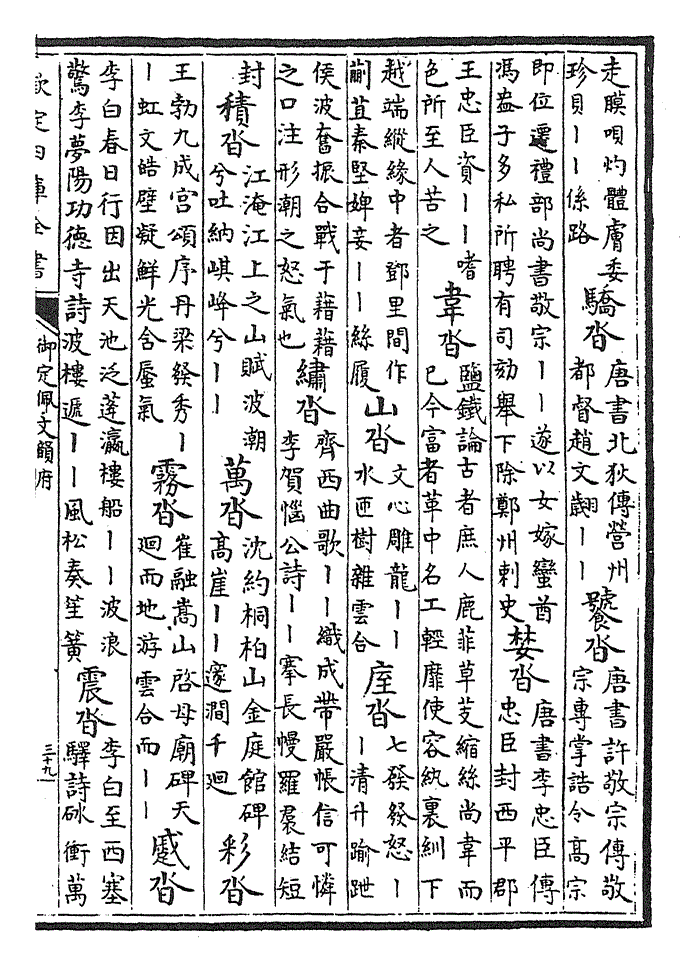 走膜唄灼體膚委
珍貝丨丨係路
驕沓
唐書北狄傳營州
都督趙文翽丨丨
饕沓
唐書許敬宗傳敬
宗專掌誥令高宗
即位遷禮部尚書敬宗丨丨遂以女嫁蠻酋
馮盎子多私所聘有司劾舉下除鄭州刺史
婪沓
唐書李忠臣傳
忠臣封西平郡
王忠臣資丨丨嗜
色所至人苦之
韋沓
鹽鐵論古者庶人鹿菲草芰縮絲尚韋而
已今富者革中名工輕靡使容紈裏紃下
越端縱緣中者鄧里間作
蒯苴秦堅婢妾丨丨絲履
山沓
文心雕龍丨丨
水匝樹雜雲合
庢沓
七發發怒丨
丨清升踰跇
侯波奮振合戰于藉藉
之口注形潮之怒氣也
繡沓
齊西曲歌丨丨織成帶嚴帳信可憐
李賀惱公詩丨丨搴長幔羅裠結短
封
積沓
江淹江上之山賦波潮
兮吐納嵁峰兮丨丨
萬沓
沈約桐柏山金庭館碑
高崖丨丨邃澗千迴
彩沓
王勃九成宮頌序丹梁發秀丨
丨虹文皓壁凝鮮光含蜃氣
霧沓
崔融嵩山啓母廟碑天
迴而地游雲合而丨丨
蹙沓
李白春日行因出天池泛蓬瀛樓船丨丨波浪
驚李夢陽功德寺詩波樓遞丨丨風松奏笙簧
震沓
李白至西塞
驛詩砯衝萬
欽定四庫全書
御定佩文韻府
三十九